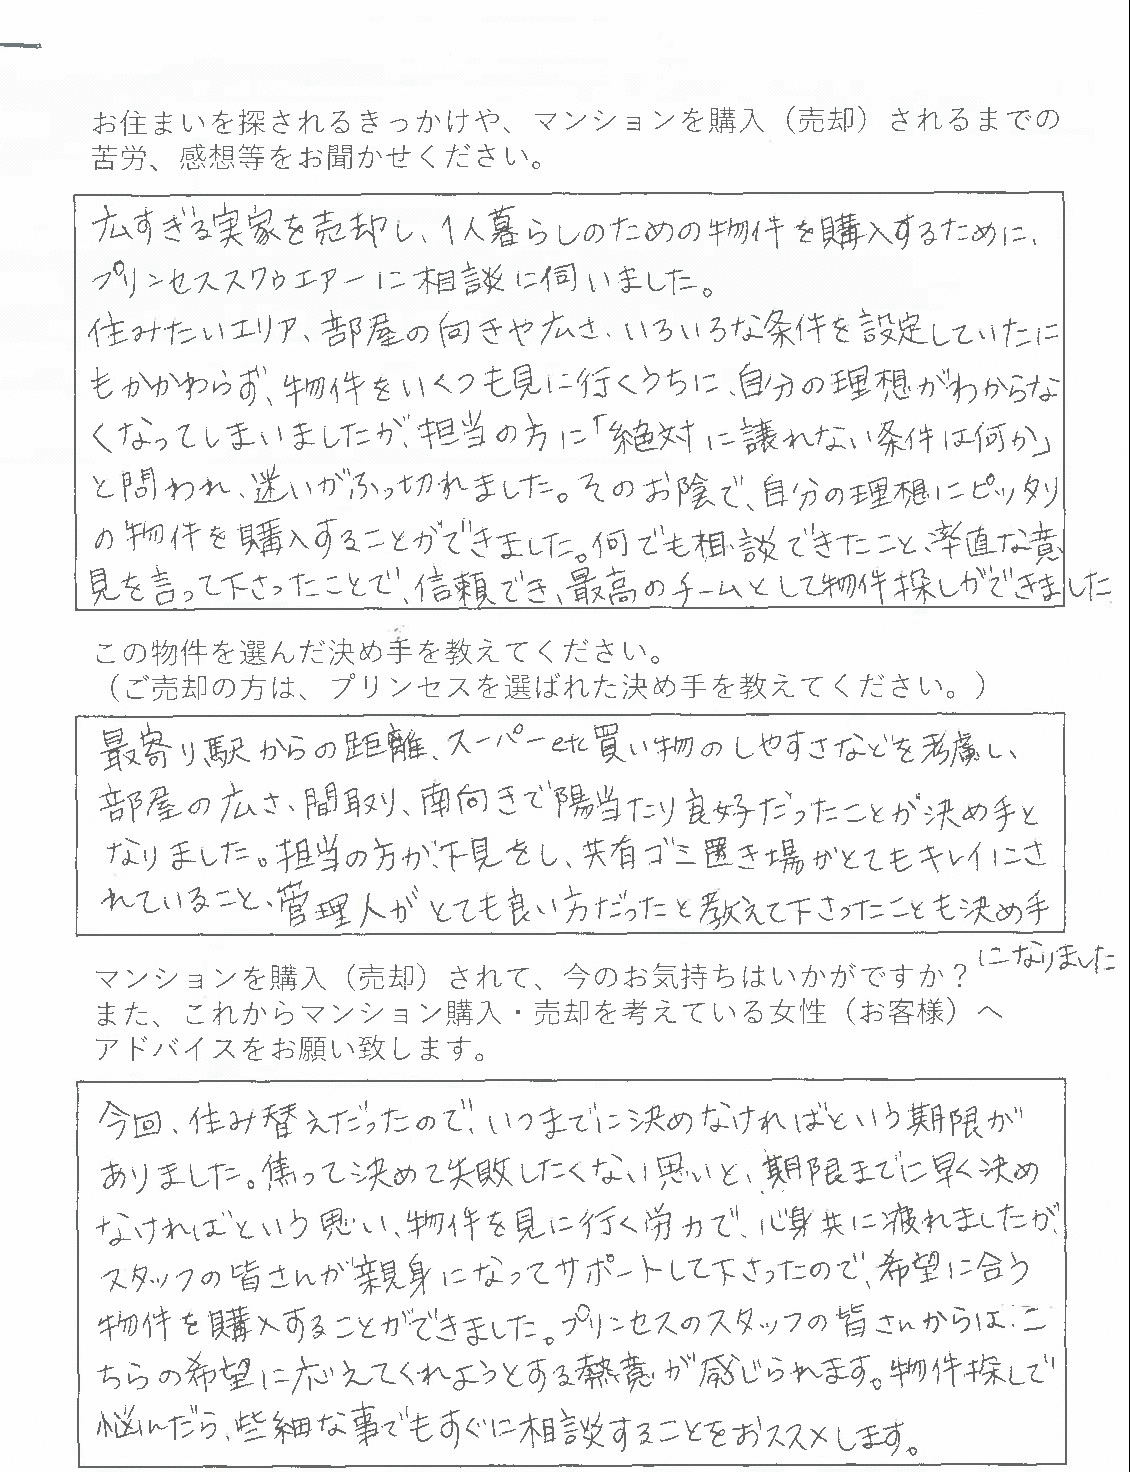 お住まいを探されるきっかけや、マンションを購入（売却）されるまでの
苦労、感想等をお聞かせください。
広すぎる実家を売却し、1人暮らしのための物件を購入するために、
プリンセススクゥエアーに相談に伺いました。
住みたいエリア、部屋の向きや広さ、いろいろな条件を設定していたに
もかかわらず、物件をいくつも見に行くうちに、自分の理想がわからな
くなってしまいましたが、担当の方に「絶対に譲れない条件は何か」
と問われ、迷いがふっ切れました。そのお陰で、自分の理想にピッタリ
の物件を購入することができました。何でも相談できたこと、率直な意
見を言って下さったことで、信頼でき、最高のチームとして物件探しができました
この物件を選んだ決め手を教えてください。
（ご売却の方は、プリンセスを選ばれた決め手を教えてください。）
最寄り駅からの距離、スーパーetc買い物のしやすさなどを考慮し、
部屋の広さ、間取り、南向きで陽当たり良好だったことが決め手と
なりました。担当の方が、下見をし、共有ゴミ置き場がとてもキレイにさ
れていること、管理人がとても良い方だったと教えて下さったことも決め手
になりました
マンションを購入（売却）されて、今のお気持ちはいかがですか？
また、これからマンション購入・売却を考えている女性（お客様）へ
アドバイスをお願い致します。
今回、住み替えだったので、いつまでに決めなければという期限が
ありました。焦って決めて失敗したくない思いと、期限までに早く決め
なければという思い、物件を見に行く労力で、心身共に疲れましたが、
スタッフの皆さんが親身になってサポートして下さったので、希望に合う
物件を購入することができました。プリンセスのスタッフの皆さんからは、こ
ちらの希望に応えてくれようとする熱意が感じられます。物件探しで
悩んだら、些細な事でもすぐに相談することをおススメします。